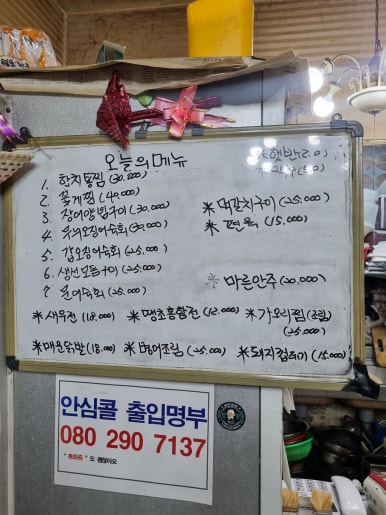 오늘의 메뉴
1. 한치통찜 (30.000)
2. 꽃게찜 (40.000)
3. 장어양념구이 (30.000)
4. 무늬오징어숙회 (30.000)
5. 갑오징어숙회 (25.000)
6. 생선모듬구이 (25.000)
7. 문어숙회 (25.000)
※ 먹갈치구이 (25.000)
※ 편육 (15.000)
※ 마른안주 (20.000)
※ 새우전 (18.000) ※ 땡초홍합전 (12.000) ※ 가오리찜 (조림)
(25.000)
※ 매운닭발 (18.000) ※ 병어조림 (25.000) ※ 돼지껍데기 (15.000)
안심콜 출입명부
080 290 7137
"통화중" 도 괜찮아요